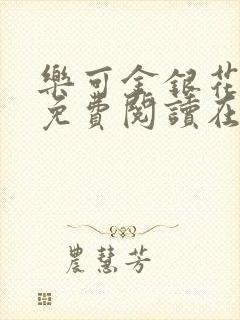 樂可金銀花
免費閱讀在
農慧芳